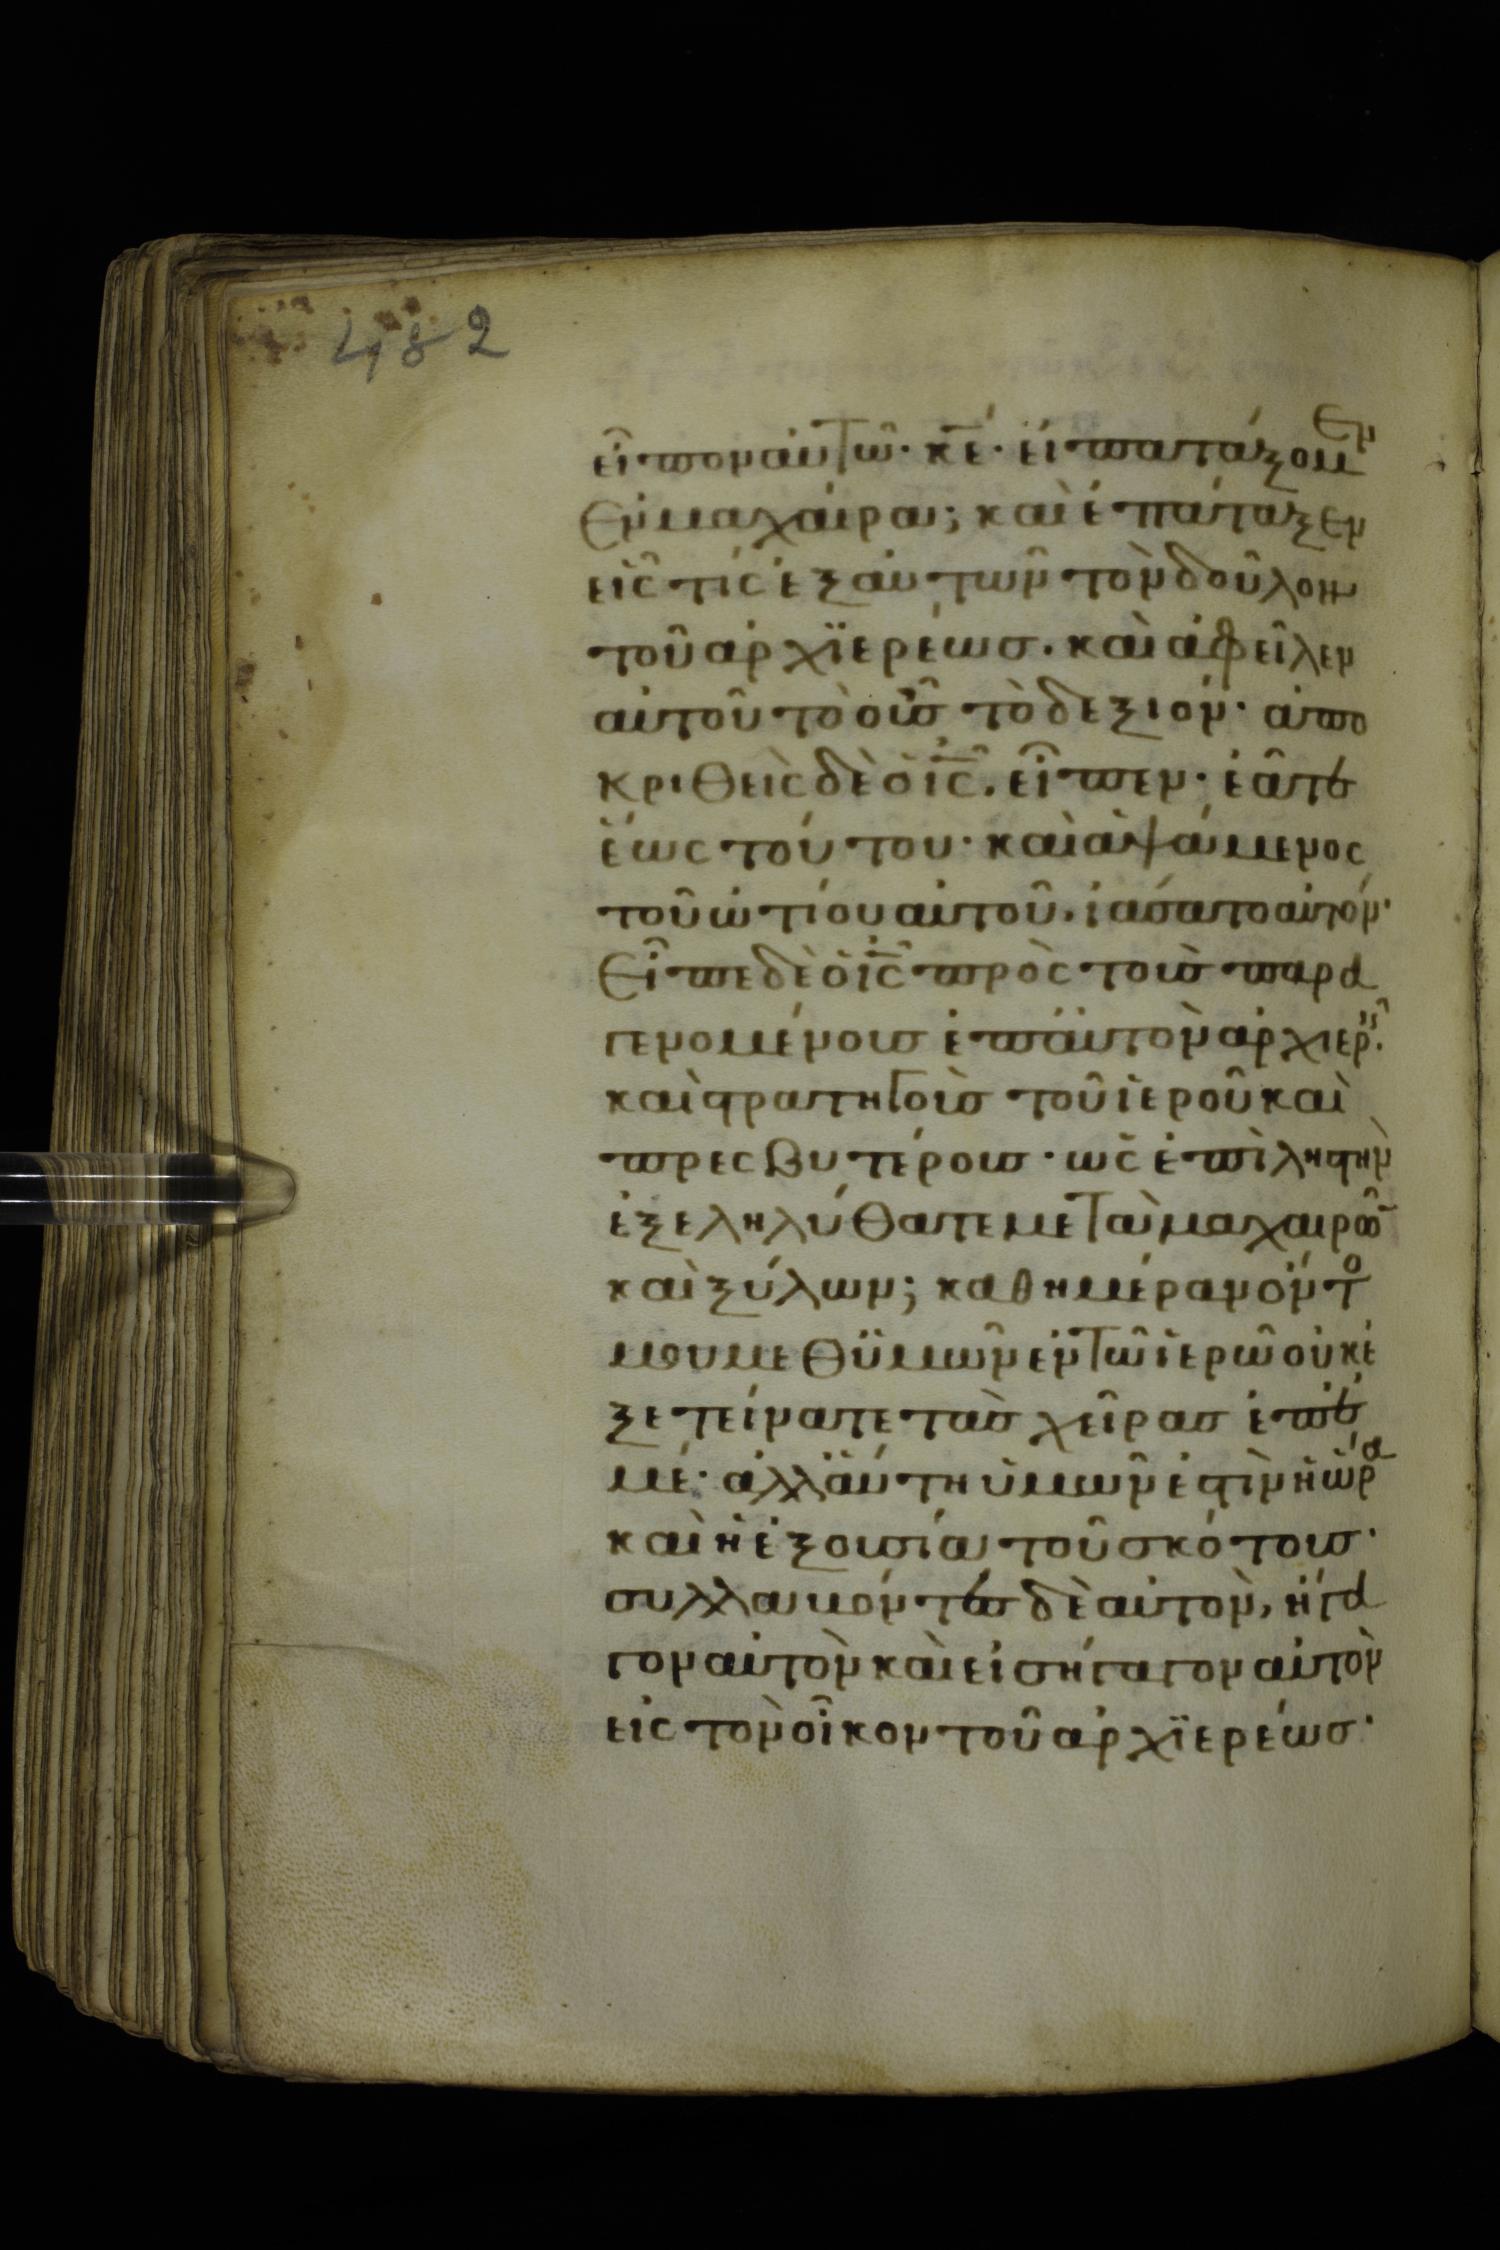 482
εἶπον αὐτῶ· κ̅ε̅· εἰ πατάξομεν
ἐν μαχαίραι; καὶ ἐπάταξεν
εἷς τίς ἐξ αὐτῶν τὸν δοῦλον
τοῦ ἀρχϊερέωσ. καὶ ἀφεῖλεν
αὐτοῦ τὸ οὖσ τὸ δεξιόν· ἀπο
κριθεὶς δὲ ὁ ι̅ς̅. εἶπεν· ἐᾶτε
ἕως τούτου· καὶ ἁψάμενος
τοῦ ὠτίου αὐτοῦ. ἰάσατο αὐτόν·
Εἶπε δὲ ὁ ι̅ς̅ πρὸς τοὺσ παρα
γενομένουσ ἐπ' αὐτὸν ἀρχιερεῖς.
καὶ στρατηγοὺσ τοῦ ἱεροῦ καὶ
πρεσβυτέρουσ· ὡς ἐπὶ ληστὴν
ἐξεληλύθατε μετὰ μαχαιρῶν
καὶ ξύλων; καθημέραν ὄντο
μου μεθ ϋμῶν ἐν τῶ ἱερῶ οὐκ ἐ
ξετείνατε τὰσ χεῖρασ ἐπ'
μέ· ἀλλ' αὕτη ὑμῶν ἐστὶν ἡ ὥρα
καὶ ἡ ἐξουσία τοῦ σκότουσ·
συλλαβόντεσ δὲ αὐτὸν, ἤγα
γον αὐτὸν καὶ εἰσήγαγον αὐτὸν
εἰς τὸν οἶκον τοῦ ἀρχϊερέωσ·